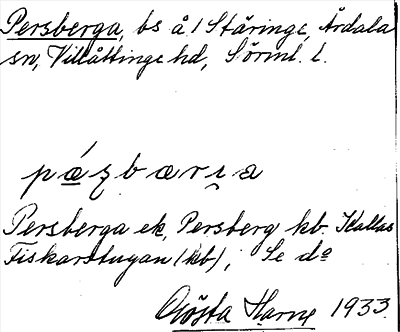 Persberga, bs å 1 Stäringe, Årdala
sn, Villåttinge hd, Sörml. l.
Persberga ek, Persberg kb. Kallas
Fiskarstugan (kb), Se do
Gösta Harne 1933.